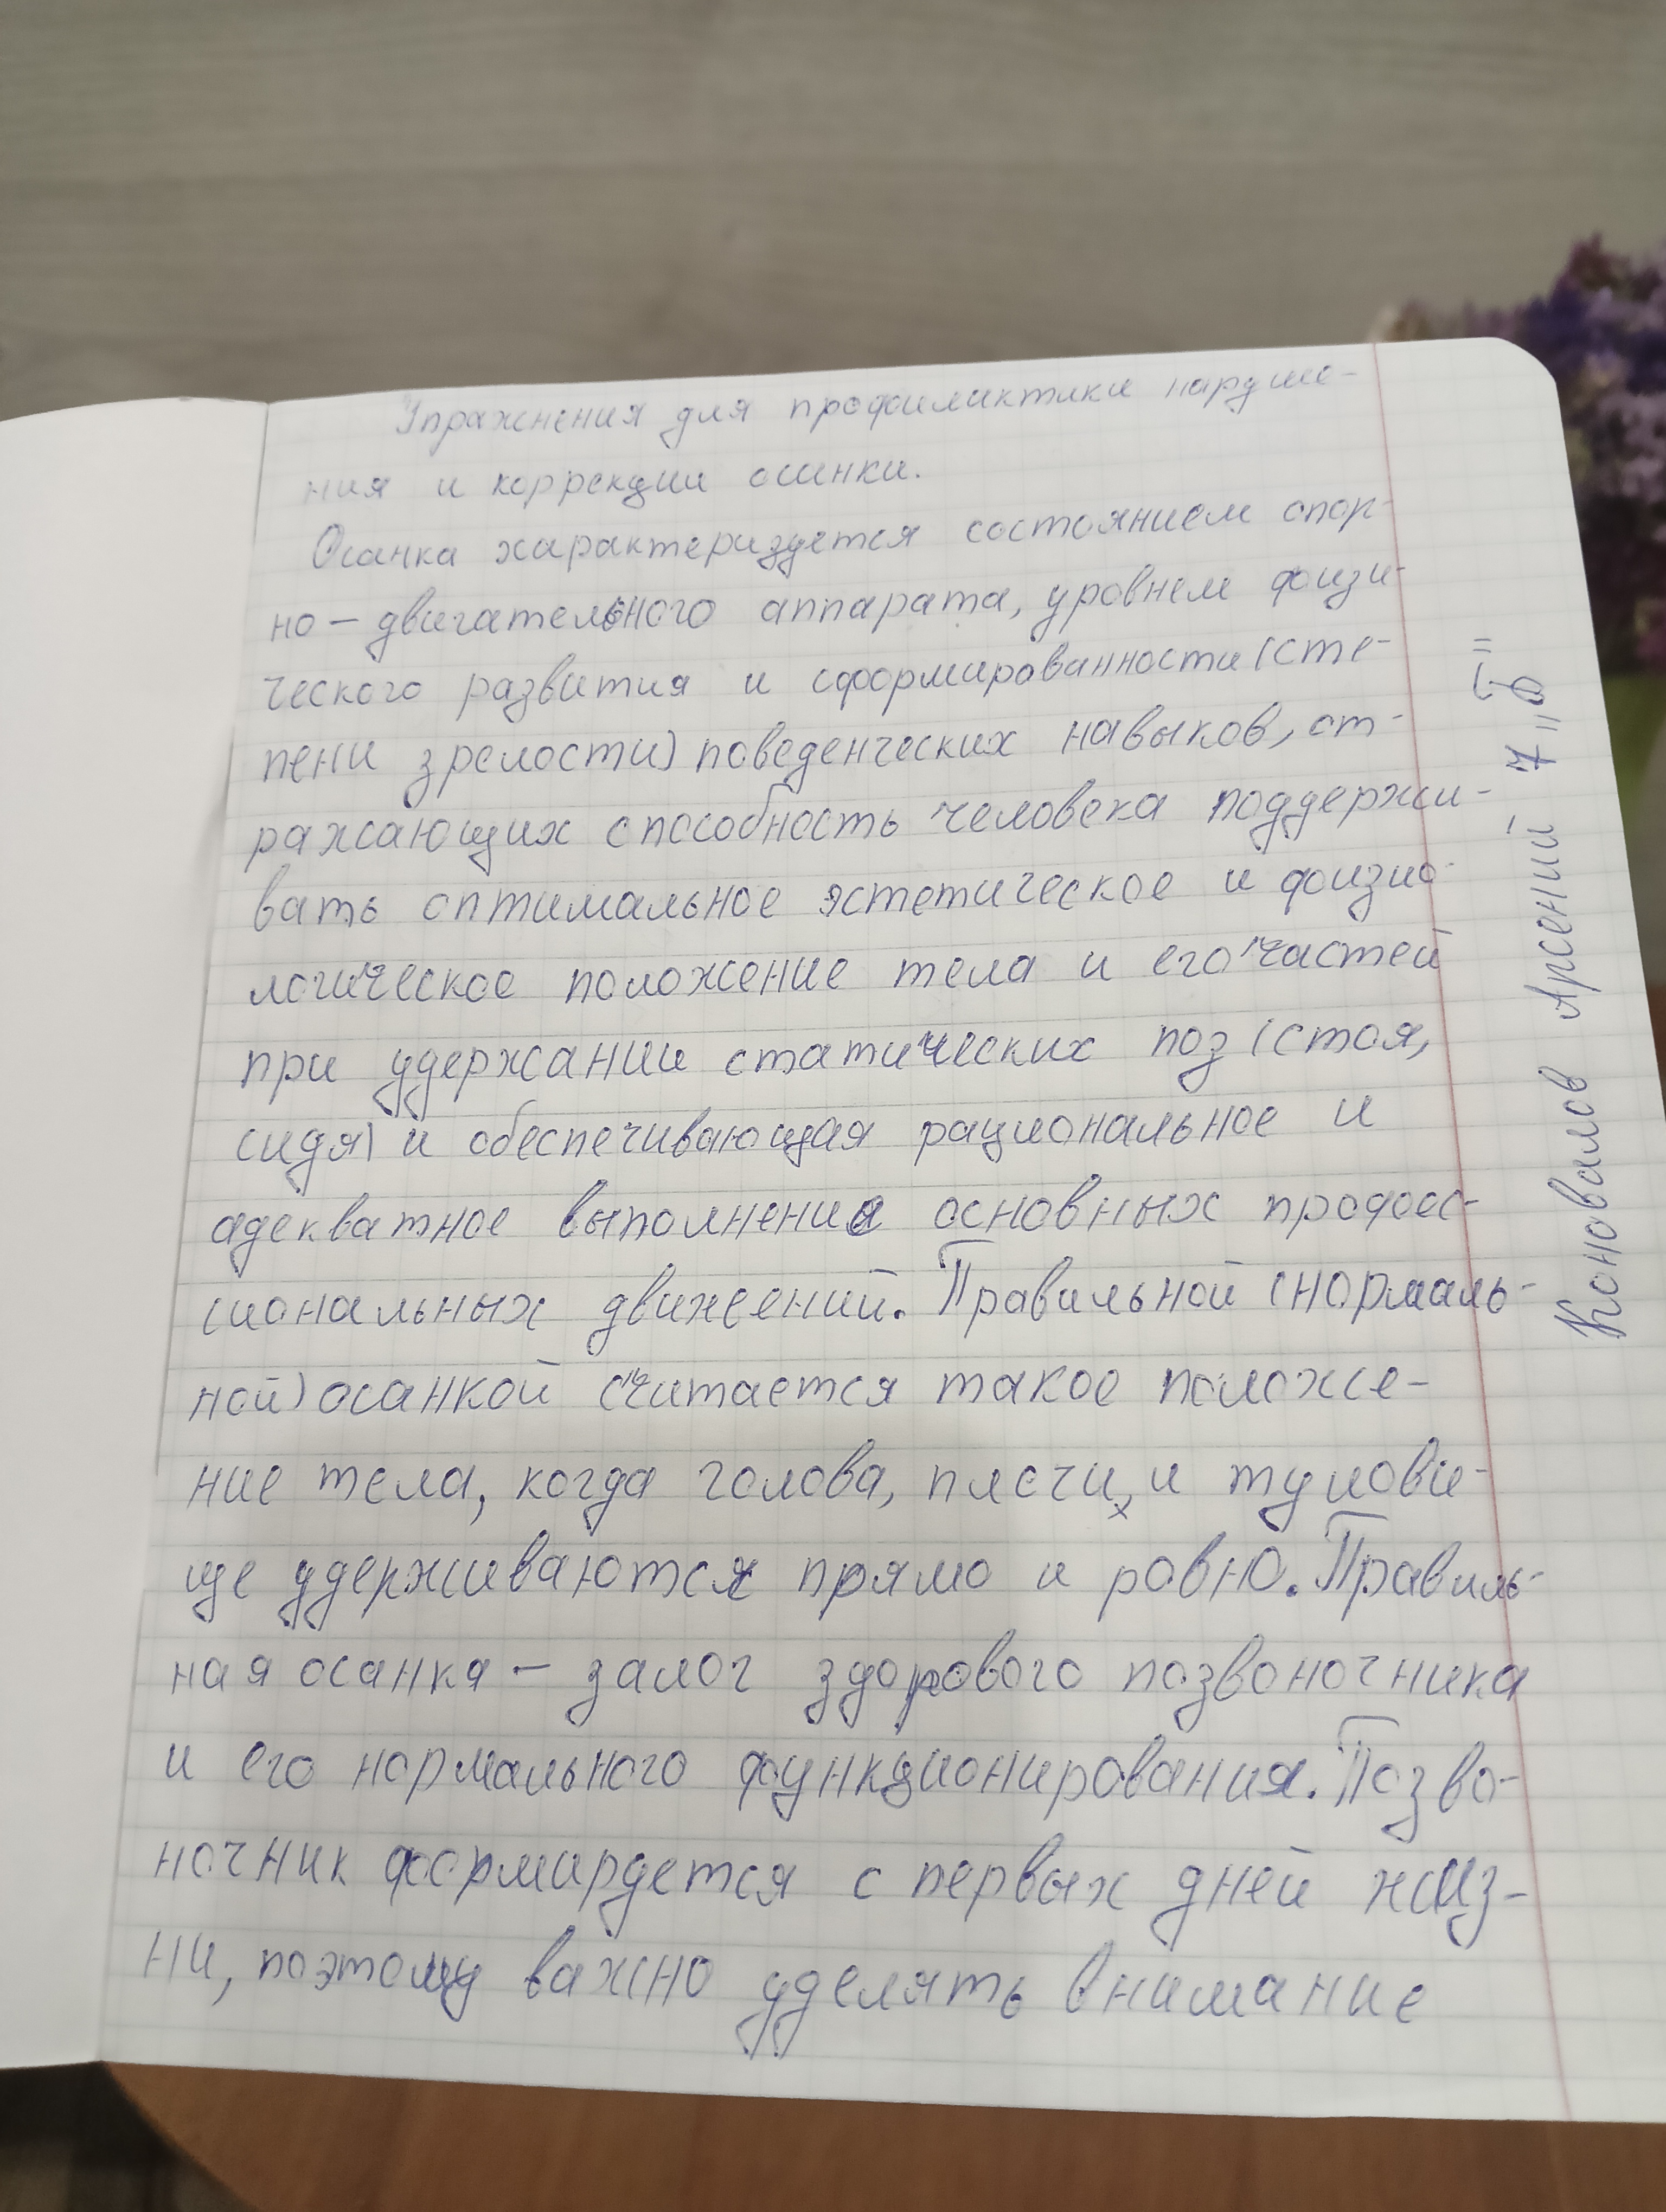 Упражнения для профилактики наруше-
ния и коррекции осанки.
Осанка характеризуется состоянием опор-
но-двигательного аппарата, уровнем физи-
ческого развития и сформированности (сте-
пени зрелости) поведенческих навыков, от-
ражающих способность человека поддержи-
вать оптимальное эстетическое и физио-
логическое положение тела и его частей
при удержании статических поз (стоя,
сидя) и обеспечивающая рациональное и
адекватное выполнение основных професс-
сиональных движений. Правильной (нормаль-
ной) осанкой считается такое положе-
ние тела, когда голова, плечи, и тулови-
ще удерживаются прямо и ровно. Правиль-
ная осанка – залог здорового позвоночника
и его нормального функционирования. Позво-
ночник формируется с первых дней жиз-
ни, поэтому важно уделять внимание
Коновалов Арсений 7 „Б"